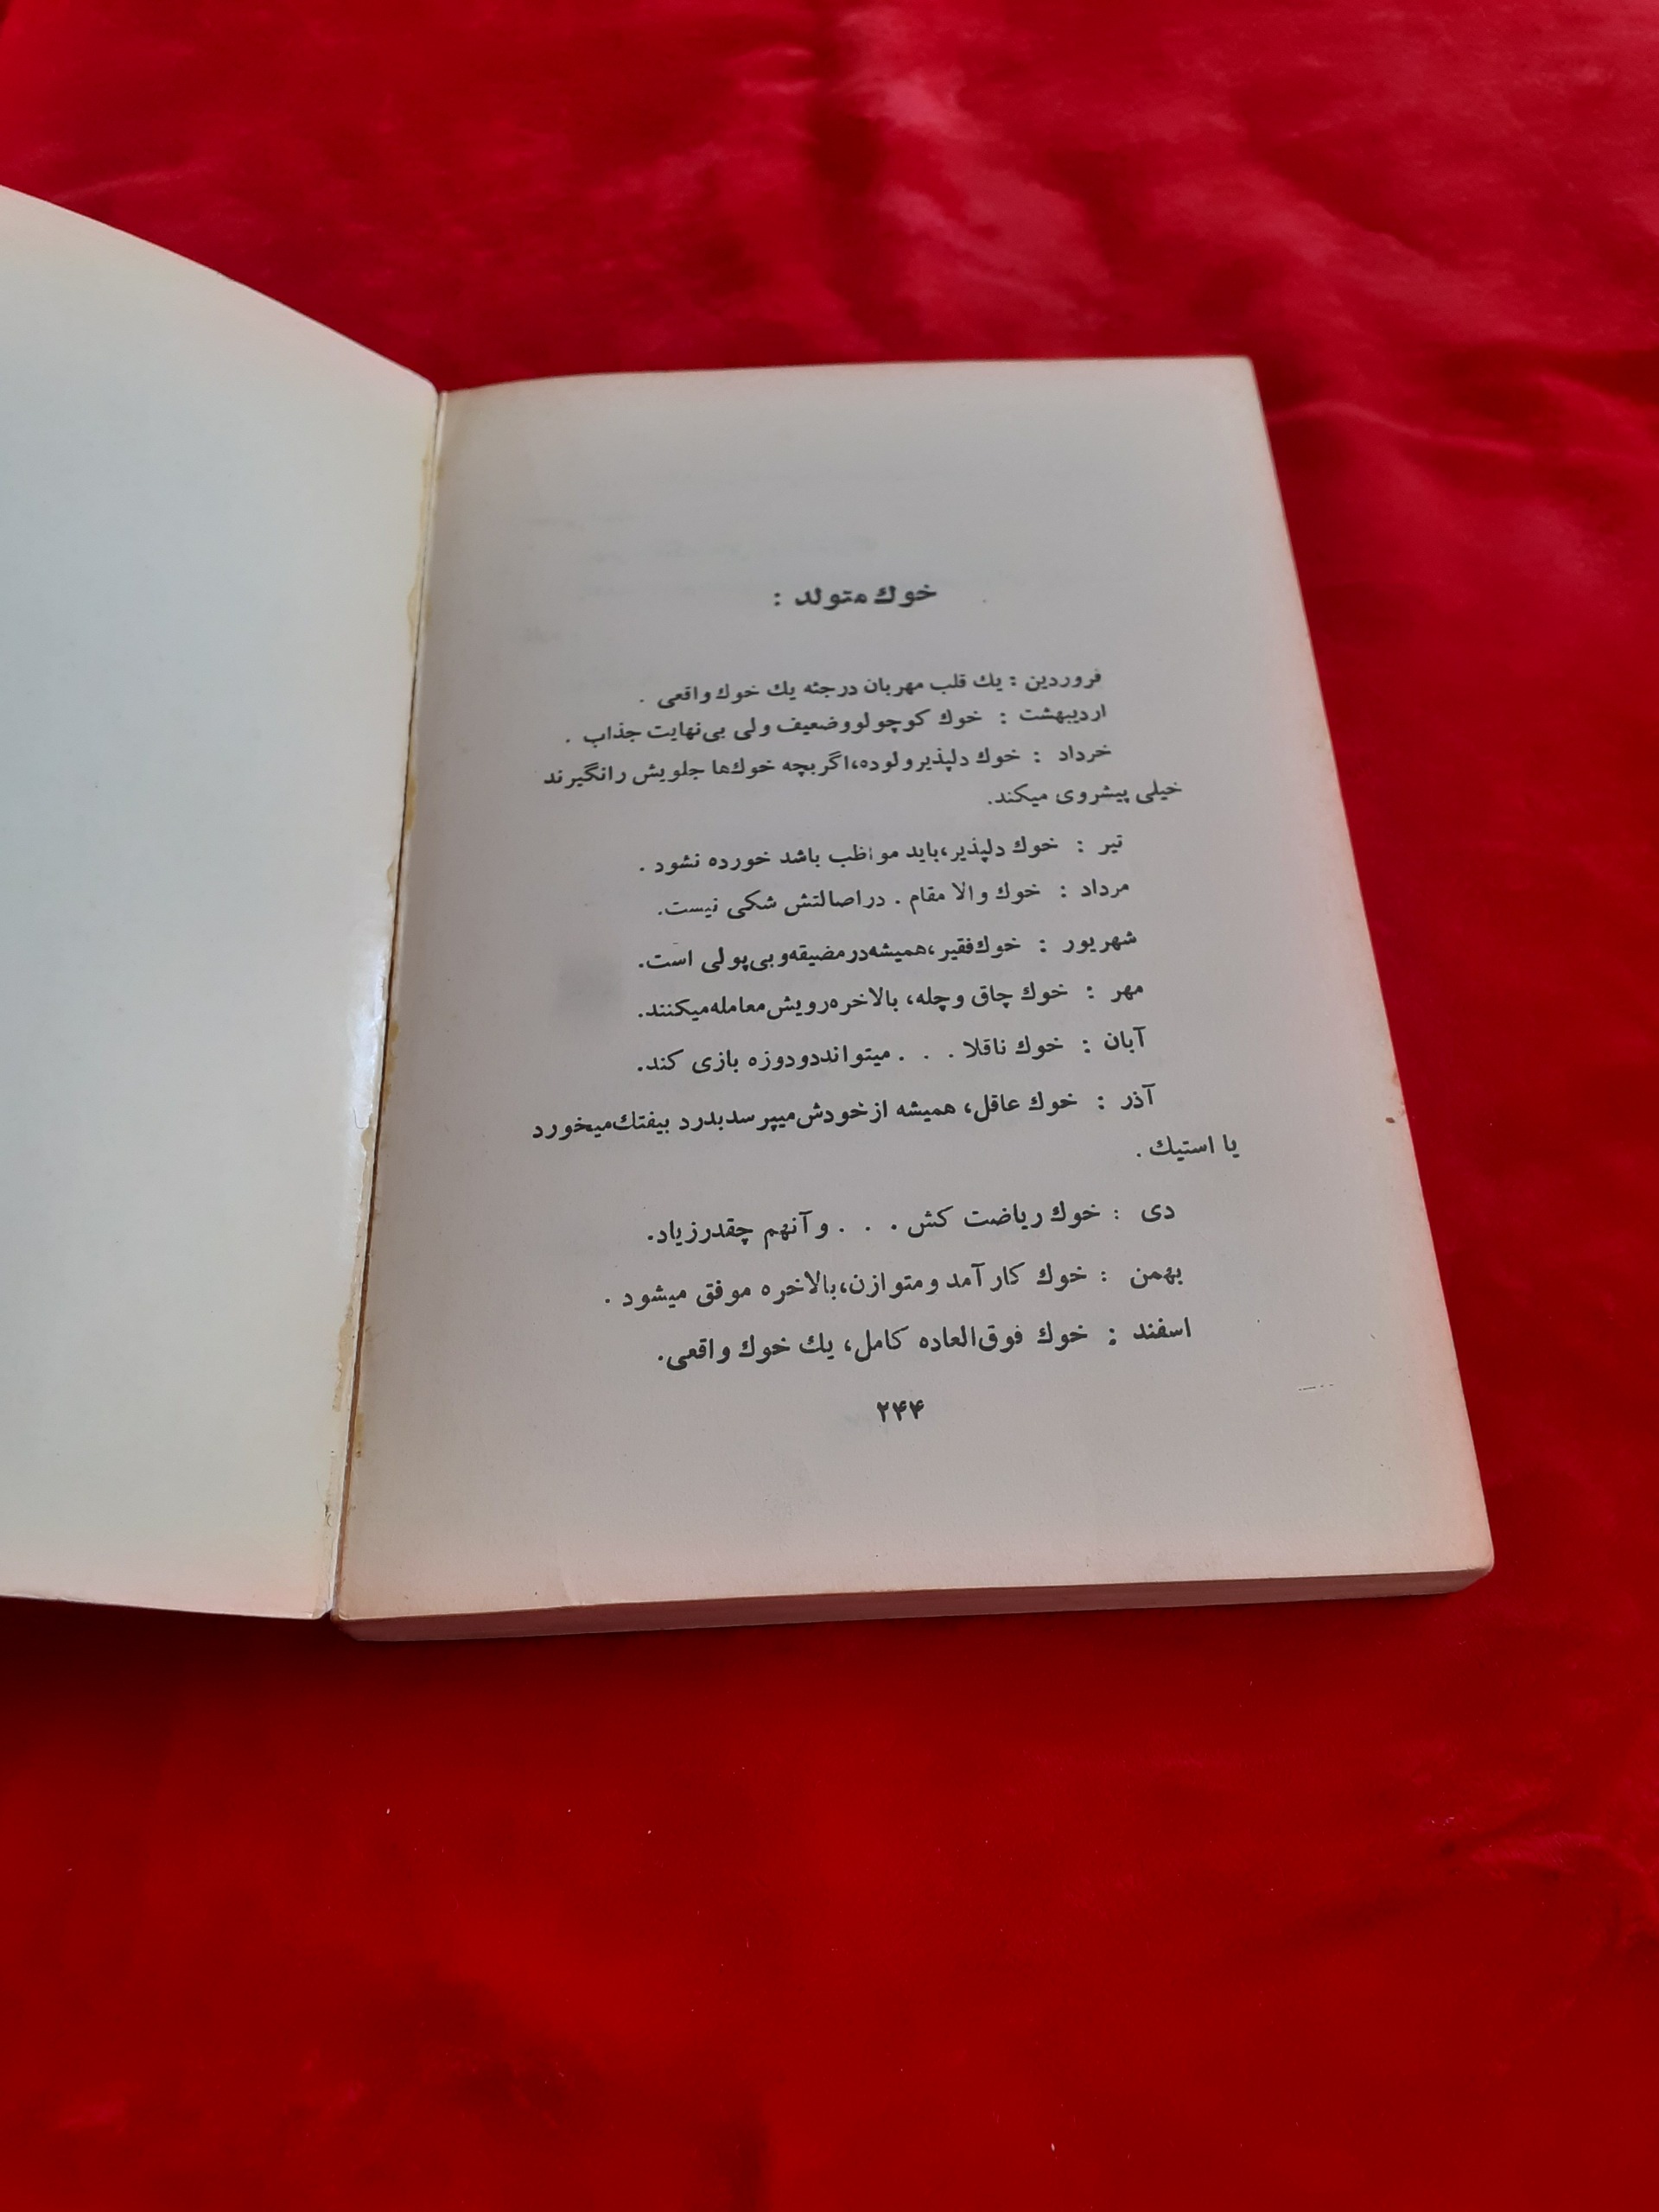 خوك متولد :
فروردین : یك قلب مهربان درجثه یك خوك واقعی .
اردیبهشت : خوك کوچولووضعیف ولی بی‌نهایت جذاب .
خرداد : خوك دلپذیرولوده،اگربچه خوك‌ها جلویش رانگیرند
خیلی پیشروی میکند.
تیر : خوك دلپذیر،باید مواظب باشد خورده نشود .
مرداد : خوك والا مقام . دراصالتش شکی نیست.
شهریور : خوك‌فقیر،همیشه‌درمضیقه‌وبی‌پولی است.
مهر : خوك چاق وچله، بالاخره‌رویش‌معامله‌میکنند.
آبان : خوك ناقلا . . . میتوانددودوزه بازی کند.
آذر : خوك عاقل، همیشه ازخودش‌میپرسدبدرد بیفتك‌میخورد
یا استیك .
دی : خوك ریاضت کش . . . وآنهم چقدرزیاد.
بهمن : خوك کارآمد ومتوازن،بالاخره موفق میشود .
اسفند : خوك فوق‌العاده کامل، یك خوك واقعی.
۲۴۴